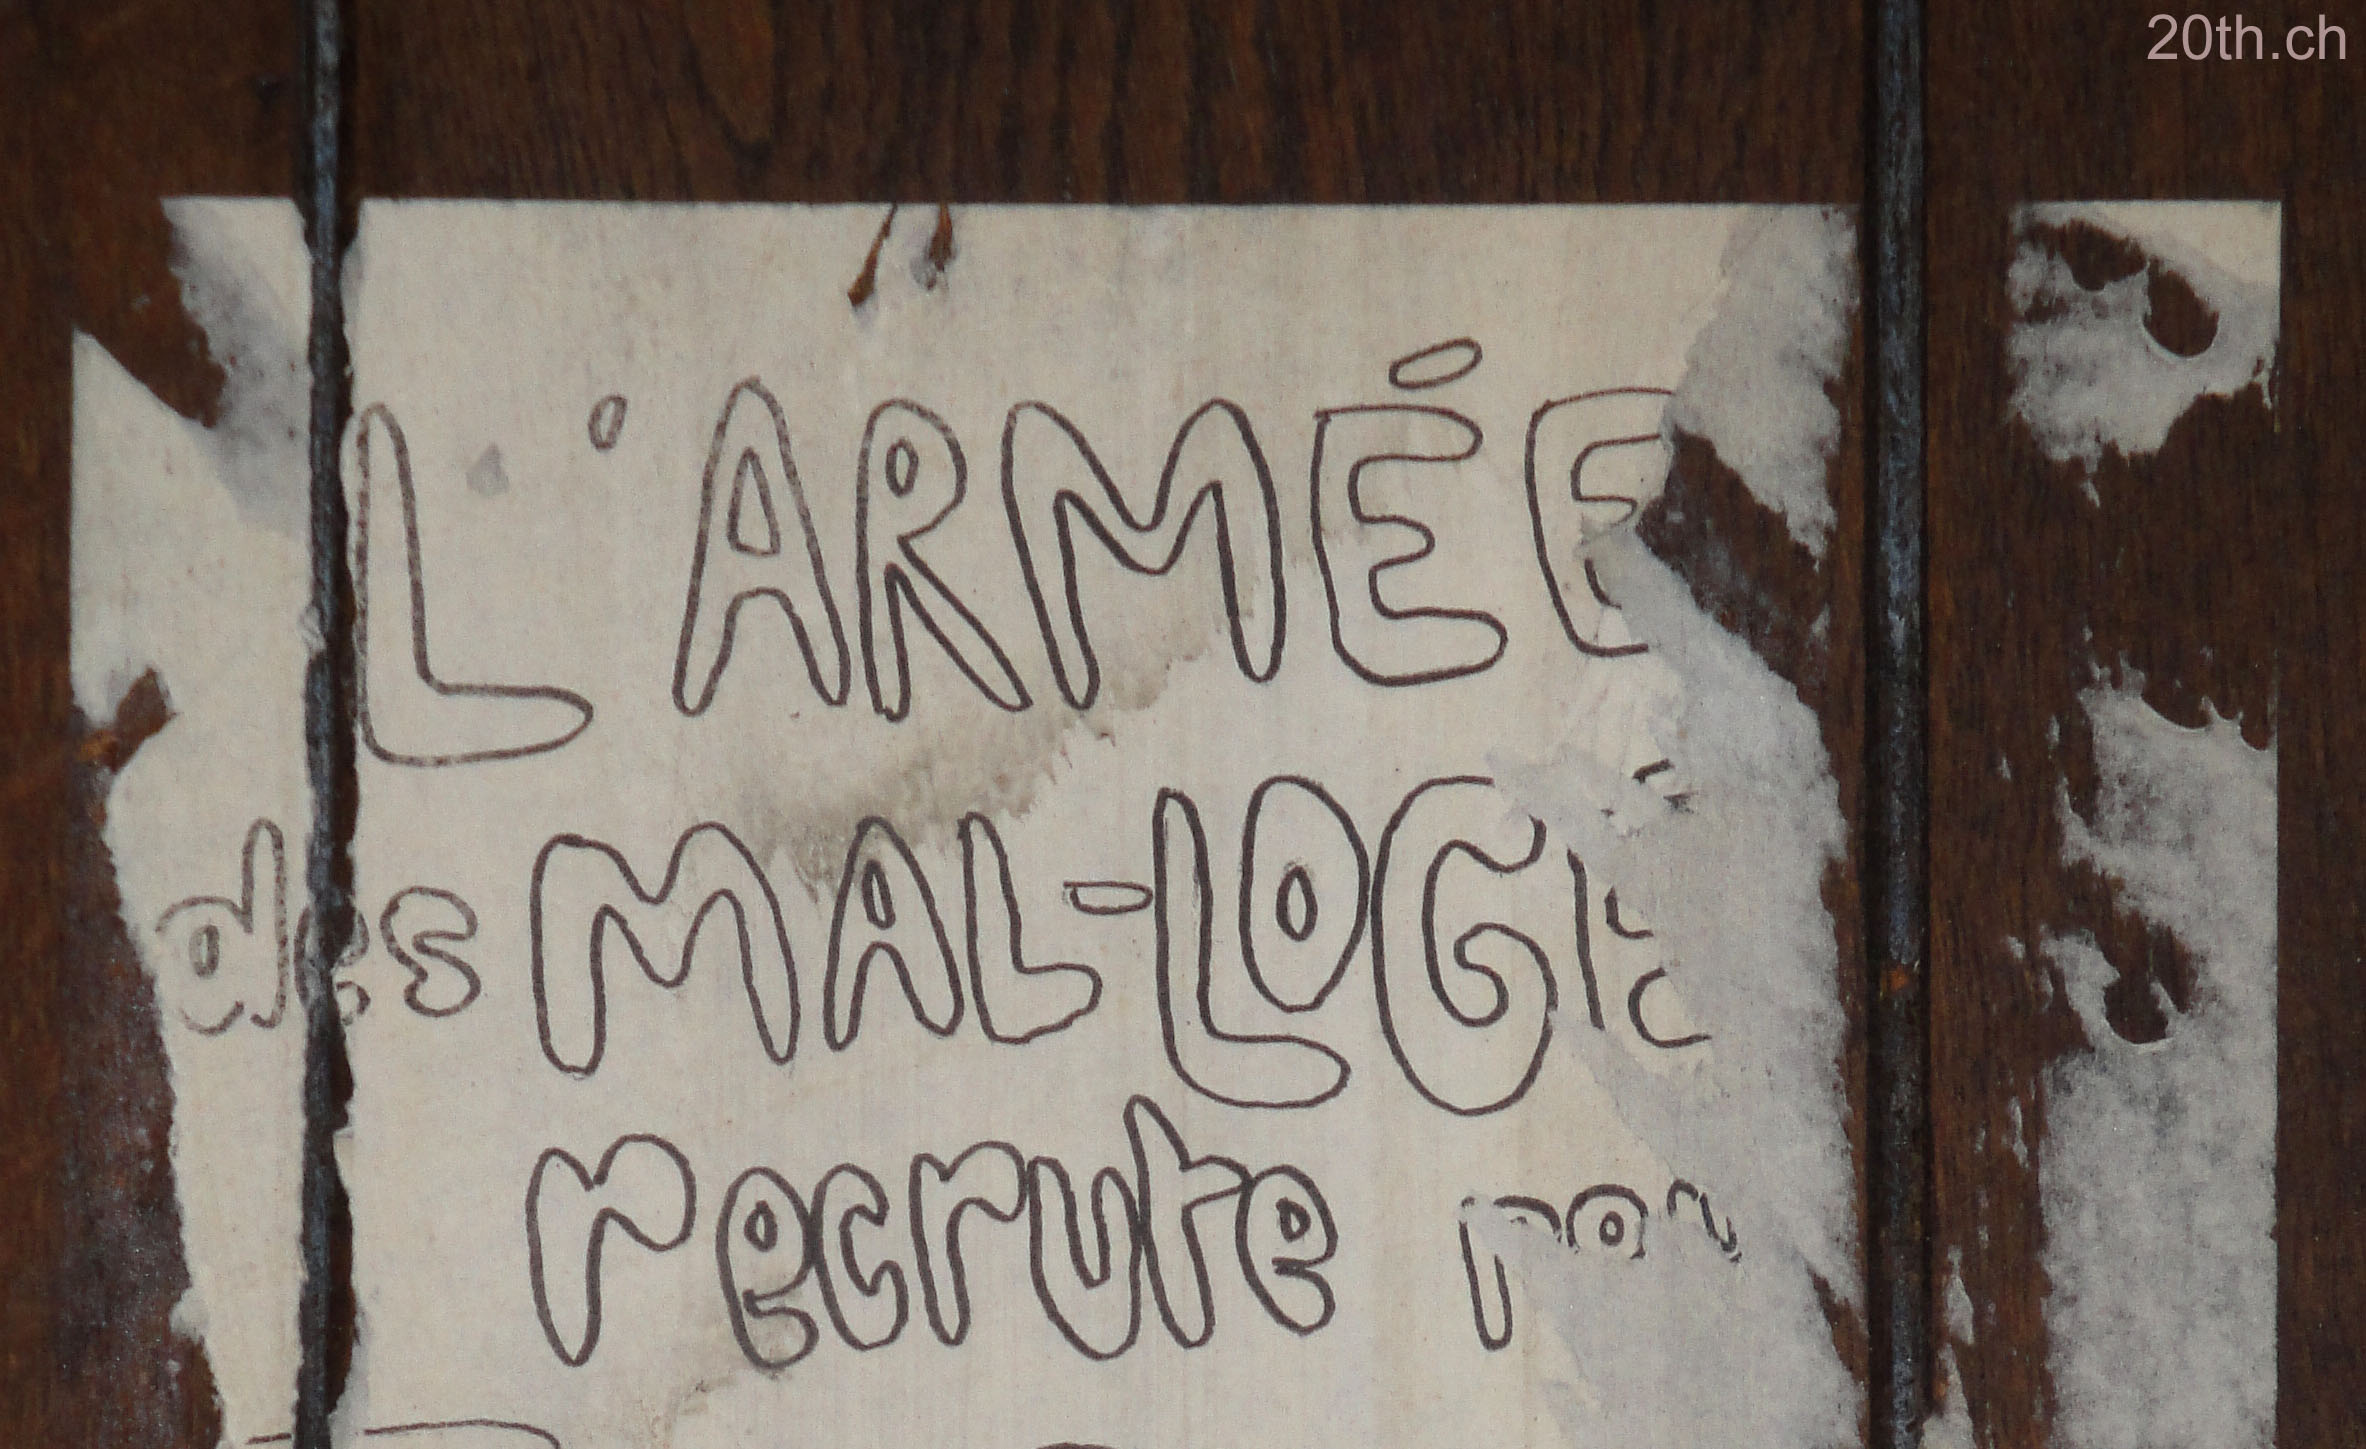 20th.ch
L'ARMÉE
des MAL-LOGÉ
recrute